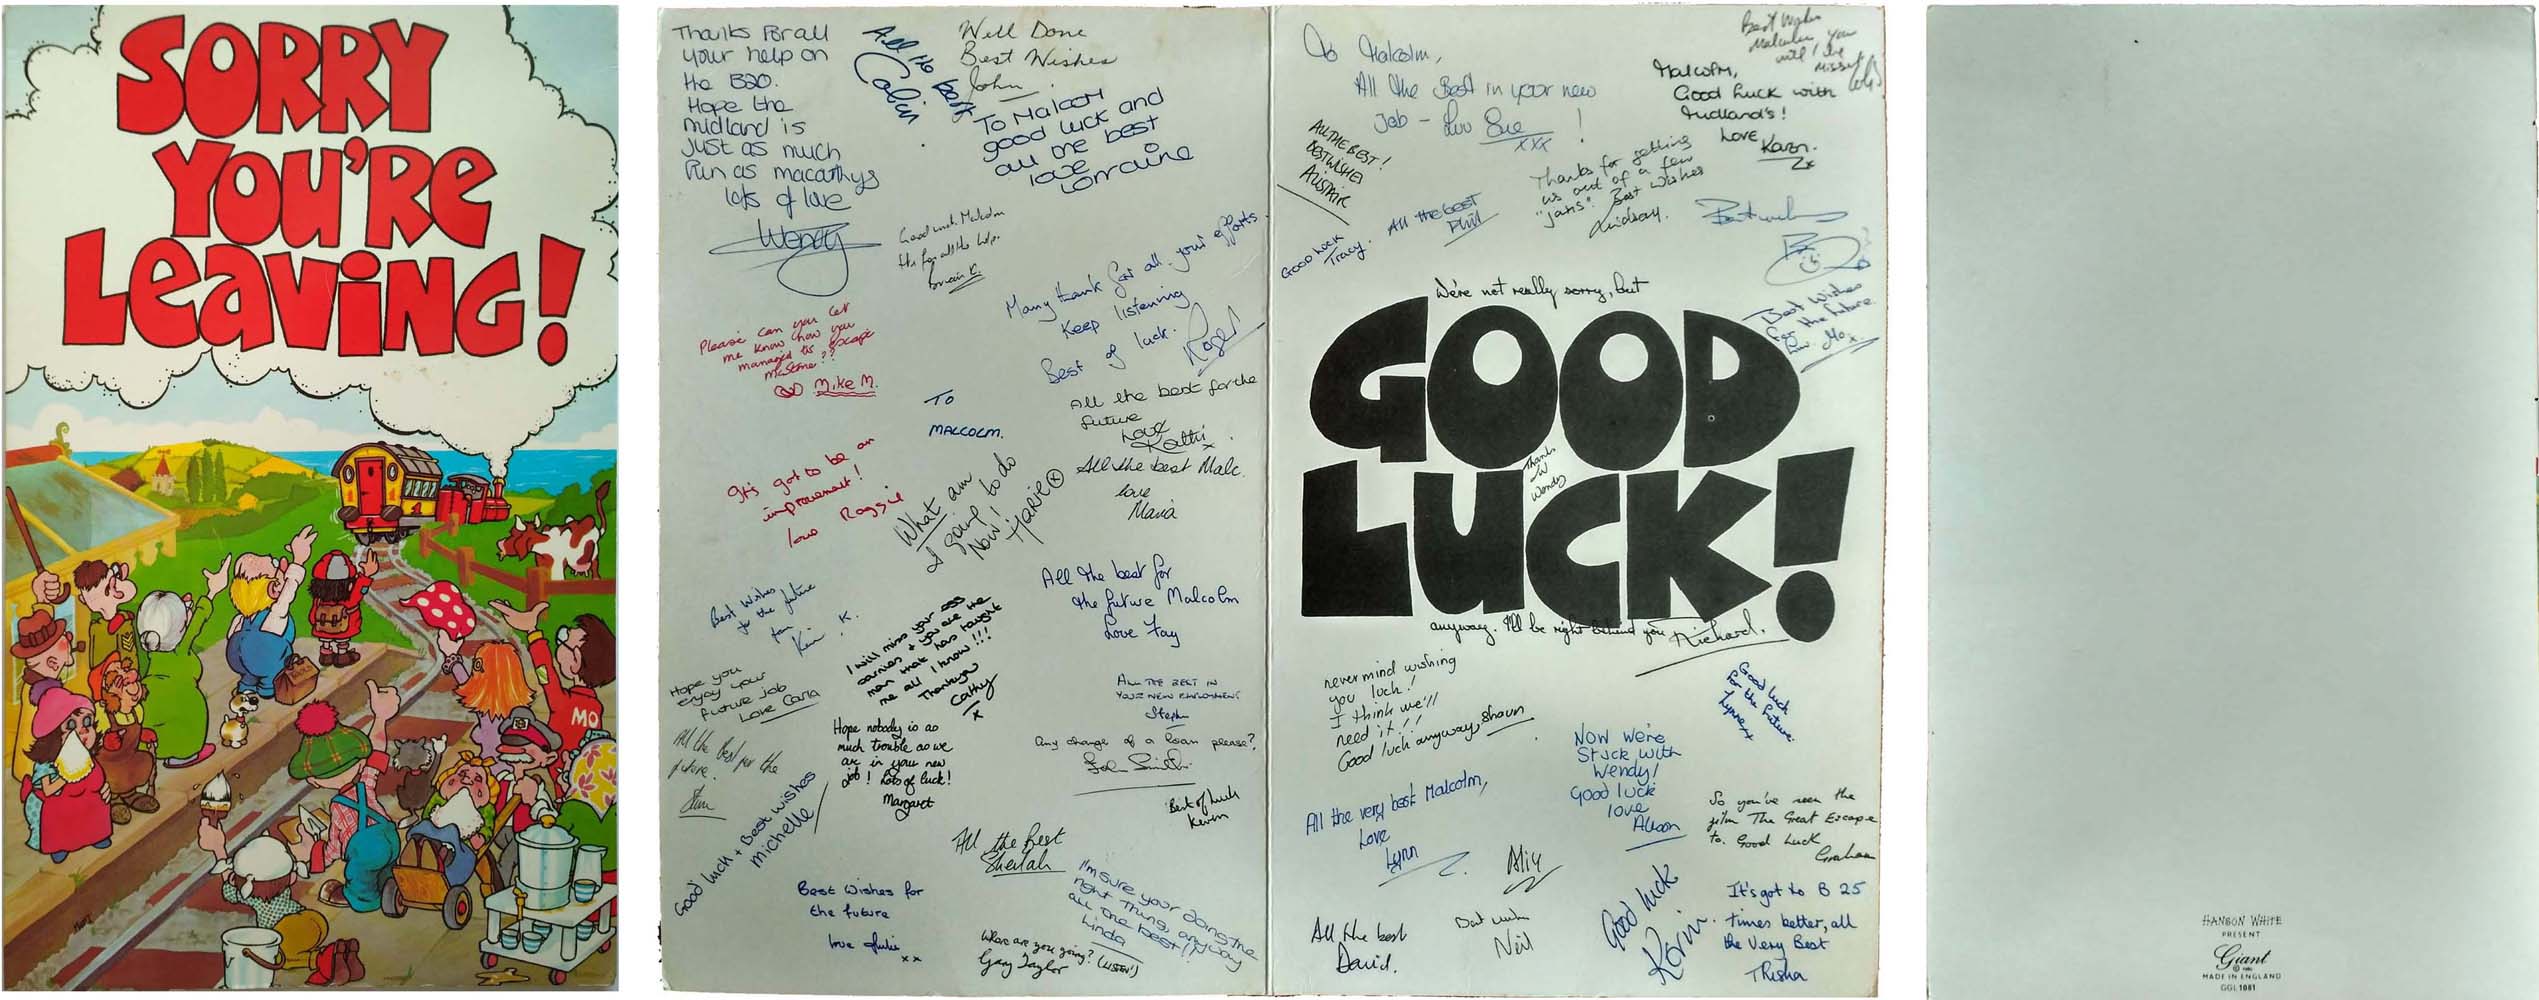 SORRY
YOU'RE
LEAVING!
MO
Thanks For all
your help on
the B20.
Hope the
midland is
just as much
fun as macarthys
lots of love
Wendy
All the best
Colin
Well Done
Best Wishes
John
To Malcolm
good luck and
all the best
love
Lorraine
Good luck Malcolm
thx for all the help.
Many thanks for all your efforts.
Keep listening
Best of luck.
Roger
Please can you let
me know how you
managed to escape
Mike M.
To
MALCOLM.
All the best for the
future
Love
Kathi x
All the best Malc.
love
Maria
It's got to be an
improvement!
love Raggie
What am
I going to do
Now!
Marie x
Best Wishes
for the future
from
K.
I will miss your
+ you are the
man that has taught
me all I know!!!
Thankyou
Cathy
x
All the best for
the future Malcolm
Love Fay
Hope you
enjoy your
future job
Love Carla
ALL THE BEST IN
YOUR NEW EMPLOYMENT
Stephen
All the Best for the
future.
Hope nobody is as
much trouble as we
are in your new
job! Lots of luck!
Margaret
Any chance of a loan please?
Best of luck
Kevin
Good luck + Best wishes
Michelle
All the Best
Sheilah
Best Wishes for
the future
love Julie
xx
I'm sure your doing the
right thing, anyway
all the best
Linda
Where are you going?
Gary Taylor
To Malcolm,
All the Best in your new
Job - Luv Sue !
xxx
Best Wishes
Malcolm you
will be
missed
Malcolm,
Good Luck with
Midland's!
Love
Karen.
ALL THE BEST!
BEST WISHES
ALISTAIR
Thanks for getting
us out of a few
"jams". Best Wishes
Lindsay.
Good Luck
Tracy.
All the best
Phil
Best wishes
Best Wishes
for the future.
Luv. Mo x
We're not really sorry, but
GOOD
LUCK!
Thanks
Wendy
anyway. I'll be right behind you Richard.
never mind wishing
you luck!
I think we'll
need it!!
Good luck anyway, Shaun
Good luck
for the future
Lynne x
Now we're
Stuck with
Wendy!
Good luck
love
Alison
All the very best Malcolm,
Love
Lynn
So you've seen the
film The Great Escape
to. Good Luck
Graham
All the best
David.
Best wishes
Neil
Good luck
Karin.
It's got to B 25
times better, all
the Very Best
TRisha
HANSON WHITE
PRESENT
Giant
MADE IN ENGLAND
GGL 1081